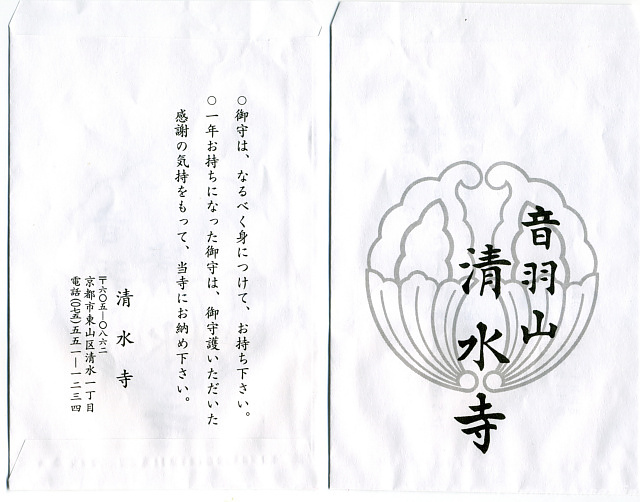 音羽山
清水寺
○御守は、なるべく身につけて、お持ち下さい。
○一年お持ちになった御守は、御守護いただいた
感謝の気持をもって、当寺にお納め下さい。
清水寺
〒六〇五―〇八六二
京都市東山区清水一丁目
電話(〇七五)五五一―一二三四